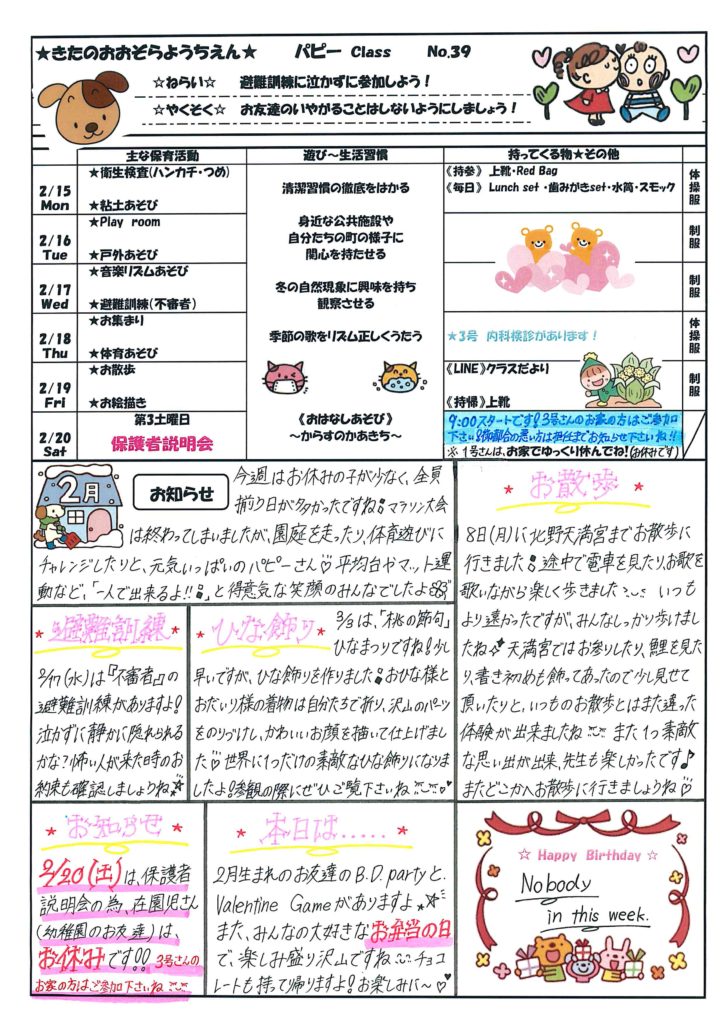 ★きたのおおぞらようちえん★ パピー Class No.39
☆ねらい☆ 避難訓練に泣かずに参加しよう！
☆やくそく☆ お友達のいやがることはしないようにしましょう！
主な保育活動 遊び～生活習慣 持ってくる物★その他
2/15 Mon
★衛生検査(ハンカチ・つめ)
★粘土あそび
清潔習慣の徹底をはかる
《持参》上靴・Red Bag
《毎日》Lunch set ・歯みがきset・水筒・スモック
体操服
2/16 Tue
★Play room
★戸外あそび
身近な公共施設や
自分たちの町の様子に
関心を持たせる
制服
2/17 Wed
★音楽リズムあそび
★避難訓練(不審者)
冬の自然現象に興味を持ち
観察させる
制服
2/18 Thu
★お集まり
★体育あそび
季節の歌をリズム正しくうたう
★3号 内科検診があります！
体操服
2/19 Fri
★お散歩
★お絵描き
《LINE》クラスだより
《持帰》上靴
制服
2/20 Sat
第3土曜日
保護者説明会
《おはなしあそび》
～からすのかあきち～
9:00スタートです！3号さんのお家の方はご参加
下さい！御都合の悪い方は担任までお知らせ下さいね!!
※1号さんは、お家でゆっくり休んでね！(お休みです)
2月
お知らせ
今週はお休みの子が少なく、全員
揃り日が多かったですね！マラソン大会
は終わってしまいましたが、園庭を走ったり、体育遊びに
チャレンジしたりと、元気いっぱいのパピーさん♡平均台やマット運
動など、「一人で出来るよ!!」と得意気な笑顔のみんなでしたよ
★お散歩★
8日(月)に北野天満宮までお散歩に
行きました！途中で電車を見たり、お歌を
歌いながら楽しく歩きました いつも
より遠かったですが、みんなしっかり歩けまし
たね☆天満宮ではお参りしたり、鯉を見た
り、書き初めも飾ってあったので少し見せて
頂いたりと、いつものお散歩とはまた違った
体験が出来ましたね また1つ素敵
な思い出が出来、先生も楽しかったです♪
またどこかへお散歩に行きましょうね♡
★避難訓練★
2/17(水)は『不審者』の
避難訓練がありますよ！
泣かずに静かに隠れられる
かな？怖い人が来た時のお
約束も確認しましょうね☆
★ひな飾り★
3/3は、「桃の節句」
ひなまつりですね！少し
早いですが、ひな飾りを作りました！おひな様と
おだいり様の着物は自分たちで折り、沢山のパーツ
をのりづけし、かわいいお顔を描いて仕上げまし
た♡世界に1つだけの素敵なひな飾りになりま
したよ！参観の際にぜひご覧下さいね♡
★お知らせ★
2/20(土)は、保護者
説明会の為、在園児さん
(幼稚園のお友達)は、
お休みです!! 3号さんの
お家の方はご参加下さいね
★本日は.....★
2月生まれのお友達のB.D. partyと、
Valentine Gameがありますよ☆
また、みんなの大好きなお弁当の日
で、楽しみ盛り沢山ですね チョコ
レートも持って帰りますよ！お楽しみに～♡
☆ Happy Birthday ☆
Nobody
in this week.